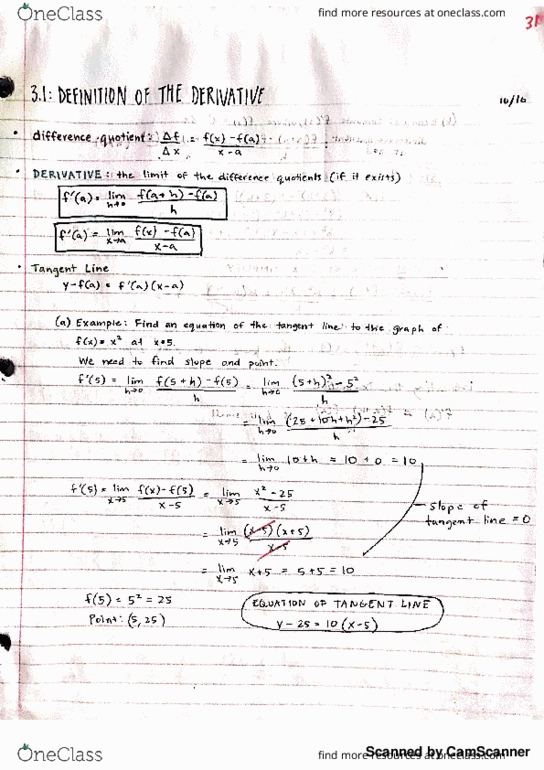 OneClass
find more resources at oneclass.com
31
3.1: DEFINITION OF THE DERIVATIVE
10/16
• difference quotient: Δf/Δx = f(x) - f(a) / x - a
• DERIVATIVE: the limit of the difference quotients (if it exists)
f'(a) = lim h→0 f(a+h) - f(a) / h
f'(a) = lim x→a f(x) - f(a) / x - a
• Tangent Line
y - f(a) = f'(a)(x - a)
(a) Example: Find an equation of the tangent line to the graph of
f(x) = x² at x=5.
We need to find slope and point.
f'(5) = lim h→0 f(5+h) - f(5) / h = lim h→0 (5+h)² - 5² / h
= lim h→0 (25 + 10h + h²) - 25 / h
= lim h→0 10+h = 10 + 0 = 10
f'(5) = lim x→5 f(x) - f(5) / x - 5 = lim x→5 x² - 25 / x - 5
slope of
tangent line = 0
= lim x→5 (x-5)(x+5) / x-5
= lim x→5 x+5 = 5+5 = 10
f(5) = 5² = 25
Point: (5, 25)
EQUATION OF TANGENT LINE
y - 25 = 10(x-5)
OneClass
find more resources at oneclass.com
Scanned by CamScanner